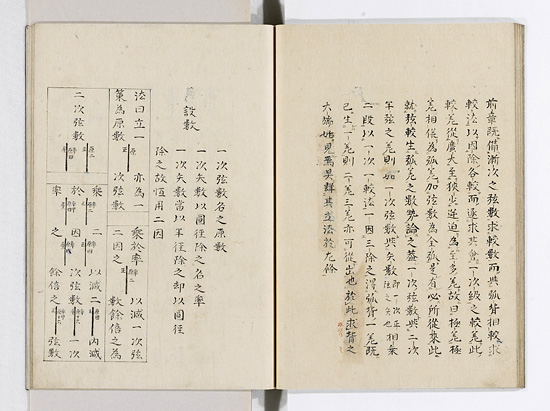 前章既備漸次之弦數求較數而與弧背相較求
較法以因除各較而逐求其會一次級之較差此
較差從廣大至狹少遂迫為至多差故曰極差極
差相従為弧差加弦數為全弧是有必所從來此
就弦較生弧差之數勢論之蓋一次弦數與二次
半弦之差則如一次弦數與矢數相乗
二段以一次一較法一因三除之得弧背一差既
已生一差則二差三差亦可從出也於此求背之
大端始見焉具詳其立法於尤脩
設數
一次弦數名之原數
一次矢數以圓徑除之名之率
一次矢數當以半徑除之却以圓徑
除之故恆用二因
法曰立一
算為原數
亦為一
次弦數
乘於率
二因之
以減一次弦
數餘倍之為
二次弦數
於
率
乘
之
二
因
以減二
次弦數
餘倍之
内減
一次
弦數